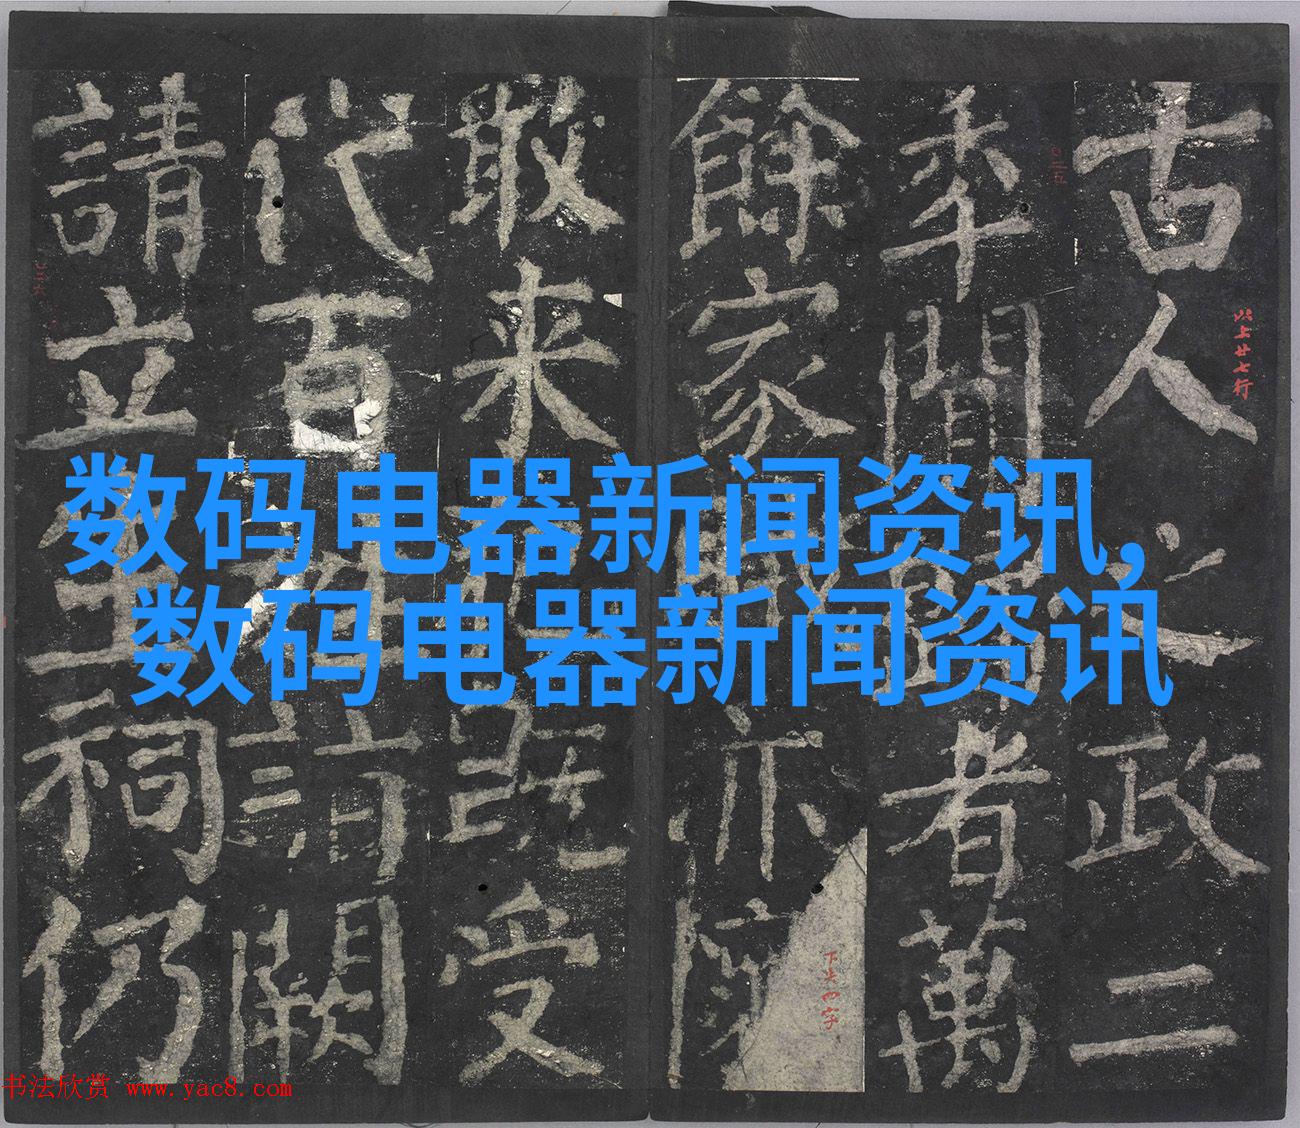 古人之政二
年聞
者萬
餘家
亦院
敢来
既受
代百姓詣闕
請立生祠仍
以上廿七行
下失四字
数码电器新闻资讯,
数码电器新闻资讯
书法欣赏 www.yac8.com